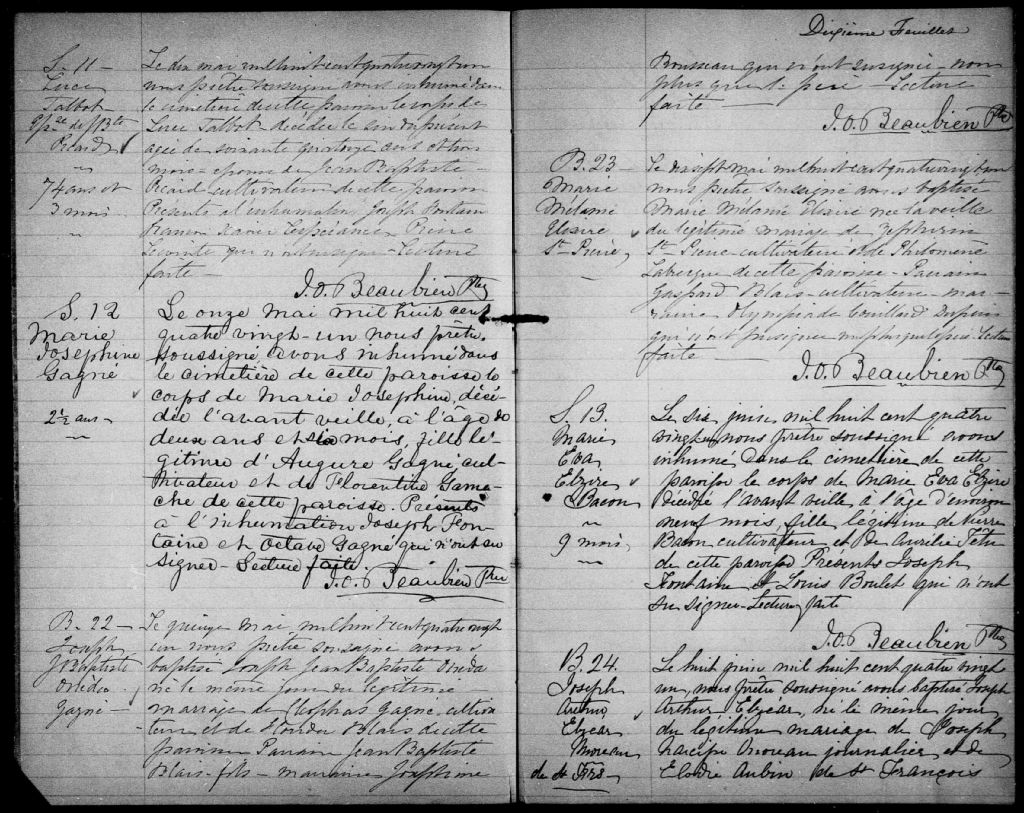 S. 11 —
Luce
Talbot —
Épse de J Bte
Picard
74 ans et
3 mois —
Le dix mai mil huit cent quatre vingt un
nous prêtre soussigné avons inhumé dans
le cimetière de cette paroisse le corps de
Luce Talbot — décédée le six du présent
agée de soixante quatorze ans et trois
mois — épouse de Jean Baptiste —
Picard cultivateur de cette paroisse
Présents à l'inhumation Joseph Fontain
Xavier Lespérance Pierre
qui n'ont su signer — Lecture
faite —
J. O. Beaubien Ptre
S. 12
Marie
Josephine
Gagné
2½ ans —
Le onze mai mil huit cent
quatre vingt-un nous prêtre
soussigné avons inhumé dans
le cimetière de cette paroisse le
corps de Marie Josephine, décé-
dée l'avant veille, à l'âge de
deux ans et six mois, fille lé-
gitime d'Augure Gagné, cul-
tivateur et de Florentine Gama-
che de cette paroisse. Présents
à l'inhumation Joseph Fon-
taine et Octave Gagné qui n'ont su
signer — Lecture faite.
J. O. Beaubien Ptre
B. 22 —
Joseph
J Baptiste
Onédor
Gagné —
Le quinze mai mil huit cent quatre vingt
un nous prêtre soussigné avons
baptisé Joseph Jean Baptiste Onéda
né le même jour du légitime
mariage de Cléophas Gagné cultiva
teur et de Blais de cette
paroisse Parrain Jean Baptiste
Blais — fils — marraine Josephine
Dixième Feuilles
Rousseau qui n'ont su signé — non
plus que le père — Lecture
faite —
J. O. Beaubien Ptre
B. 23
Marie
Mélanie
Elzire
St Pierre
Le dix sept mai mil huit cent quatre vingt un
nous prêtre soussigné avons baptisé
Marie Mélanie Elzire née la veille
du légitime mariage de Zéphirin
St Pierre — cultivateur et de Philomène
Laberge de cette paroisse — Parrain
Gaspard Blais — cultivateur — mar-
raine Olympe Couillard Dupuis
qui n'ont pu signer non plus que le père. Lecture
faite —
J. O. Beaubien Ptre
S. 13
Marie
Eva
Elzire
Bacon
9 mois
Le six juin, mil huit cent quatre
vingt-un, nous prêtre soussigné avons
inhumé dans le cimetière de cette
paroisse le corps de Marie Eva Elzire
décédée l'avant veille à l'âge d'environ
neuf mois, fille légitime de Pierre
Bacon, cultivateur et de Aurélie Têtu
de cette paroisse Présents Joseph
Fontaine & Louis Boulet qui n'ont
su signer — Lecture faite
J. O. Beaubien Ptre
B. 24.
Joseph
Elzear
Moreau
de St Frs
Le huit juin mil huit cent quatre vingt
un, nous prêtre soussigné avons baptisé Joseph
Arthur Elzear, né le même jour
du légitime mariage de Joseph
Narcisse Moreau journalier et de
Elodie Aubin de St François